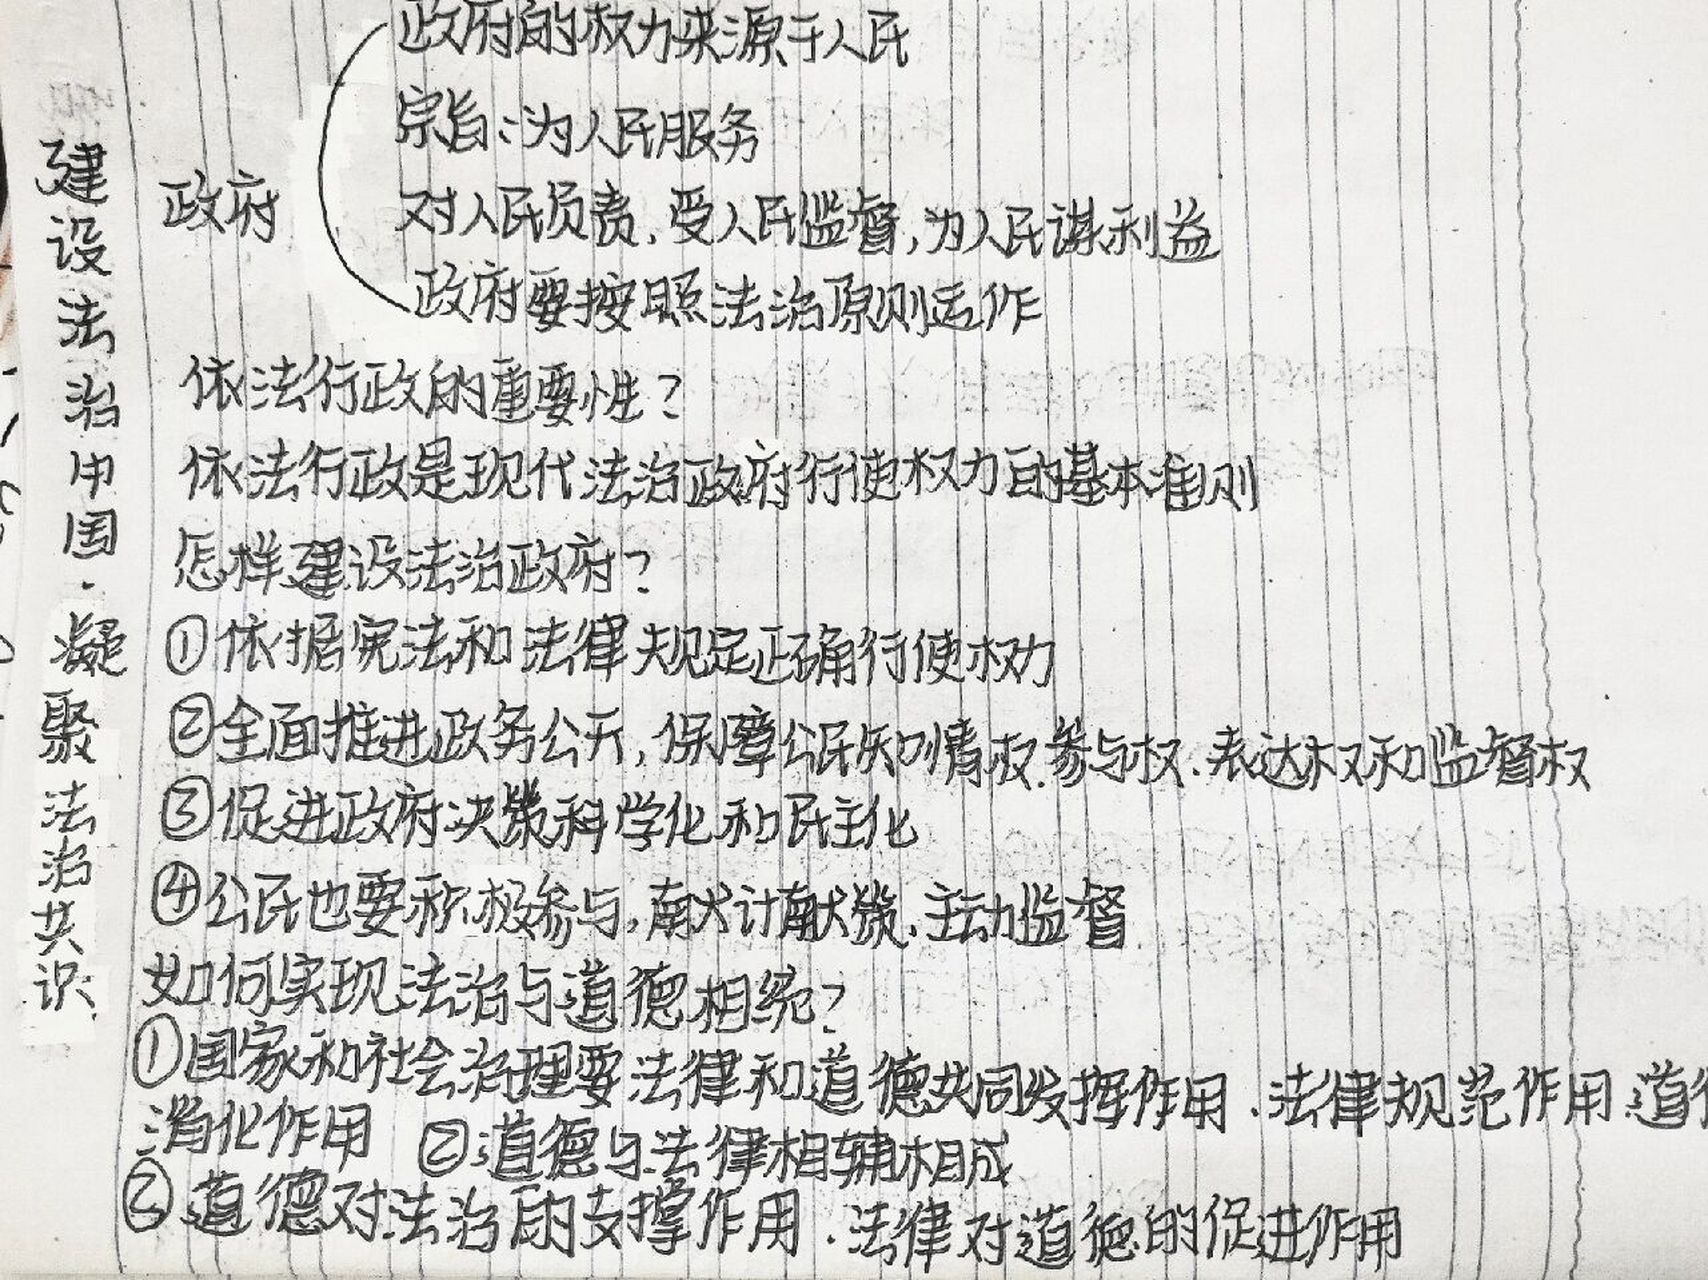 建设法治中国·凝聚法治共识
政府
政府的权力来源于人民
宗旨:为人民服务
对人民负责,受人民监督,为人民谋利益
政府要按照法治原则运作
依法行政的重要性?
依法行政是现代法治政府行使权力的基本准则
怎样建设法治政府?
①依据宪法和法律规定正确行使权力
②全面推进政务公开,保障公民知情权.参与权、表达权和监督权
③促进政府决策科学化和民主化
④公民也要积极参与,献计献策、主动监督
如何实现法治与道德相统?
①国家和社会治理要法律和道德共同发挥作用.法律规范作用.道
消化作用 ②道德与法律相辅相成
道德对法治的支撑作用.法律对道德的促进作用